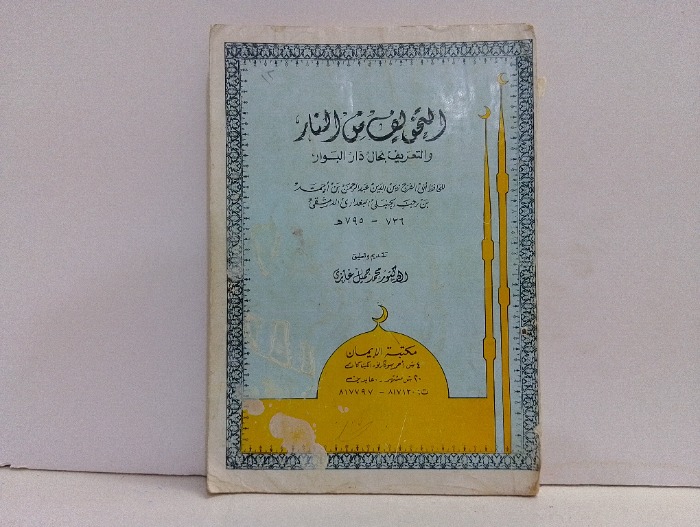 التخويف من النار
والتعريف بحال دار البوار
للحافظ أبي الفرج زين الدين عبد الرحمن بن أحمد
بن رجب الحنبلي البغدادي الدمشقي
٧٣٦ - ٧٩٥ هـ
تقديم وتعليق
الدكتور محمد جميل غازي
مكتبة الإيمان
٤ ش أحمد سوكارنو
٢٠ ش
ت: ٨١٧١٢٠ - ٨١٧٧٩٧
١٣